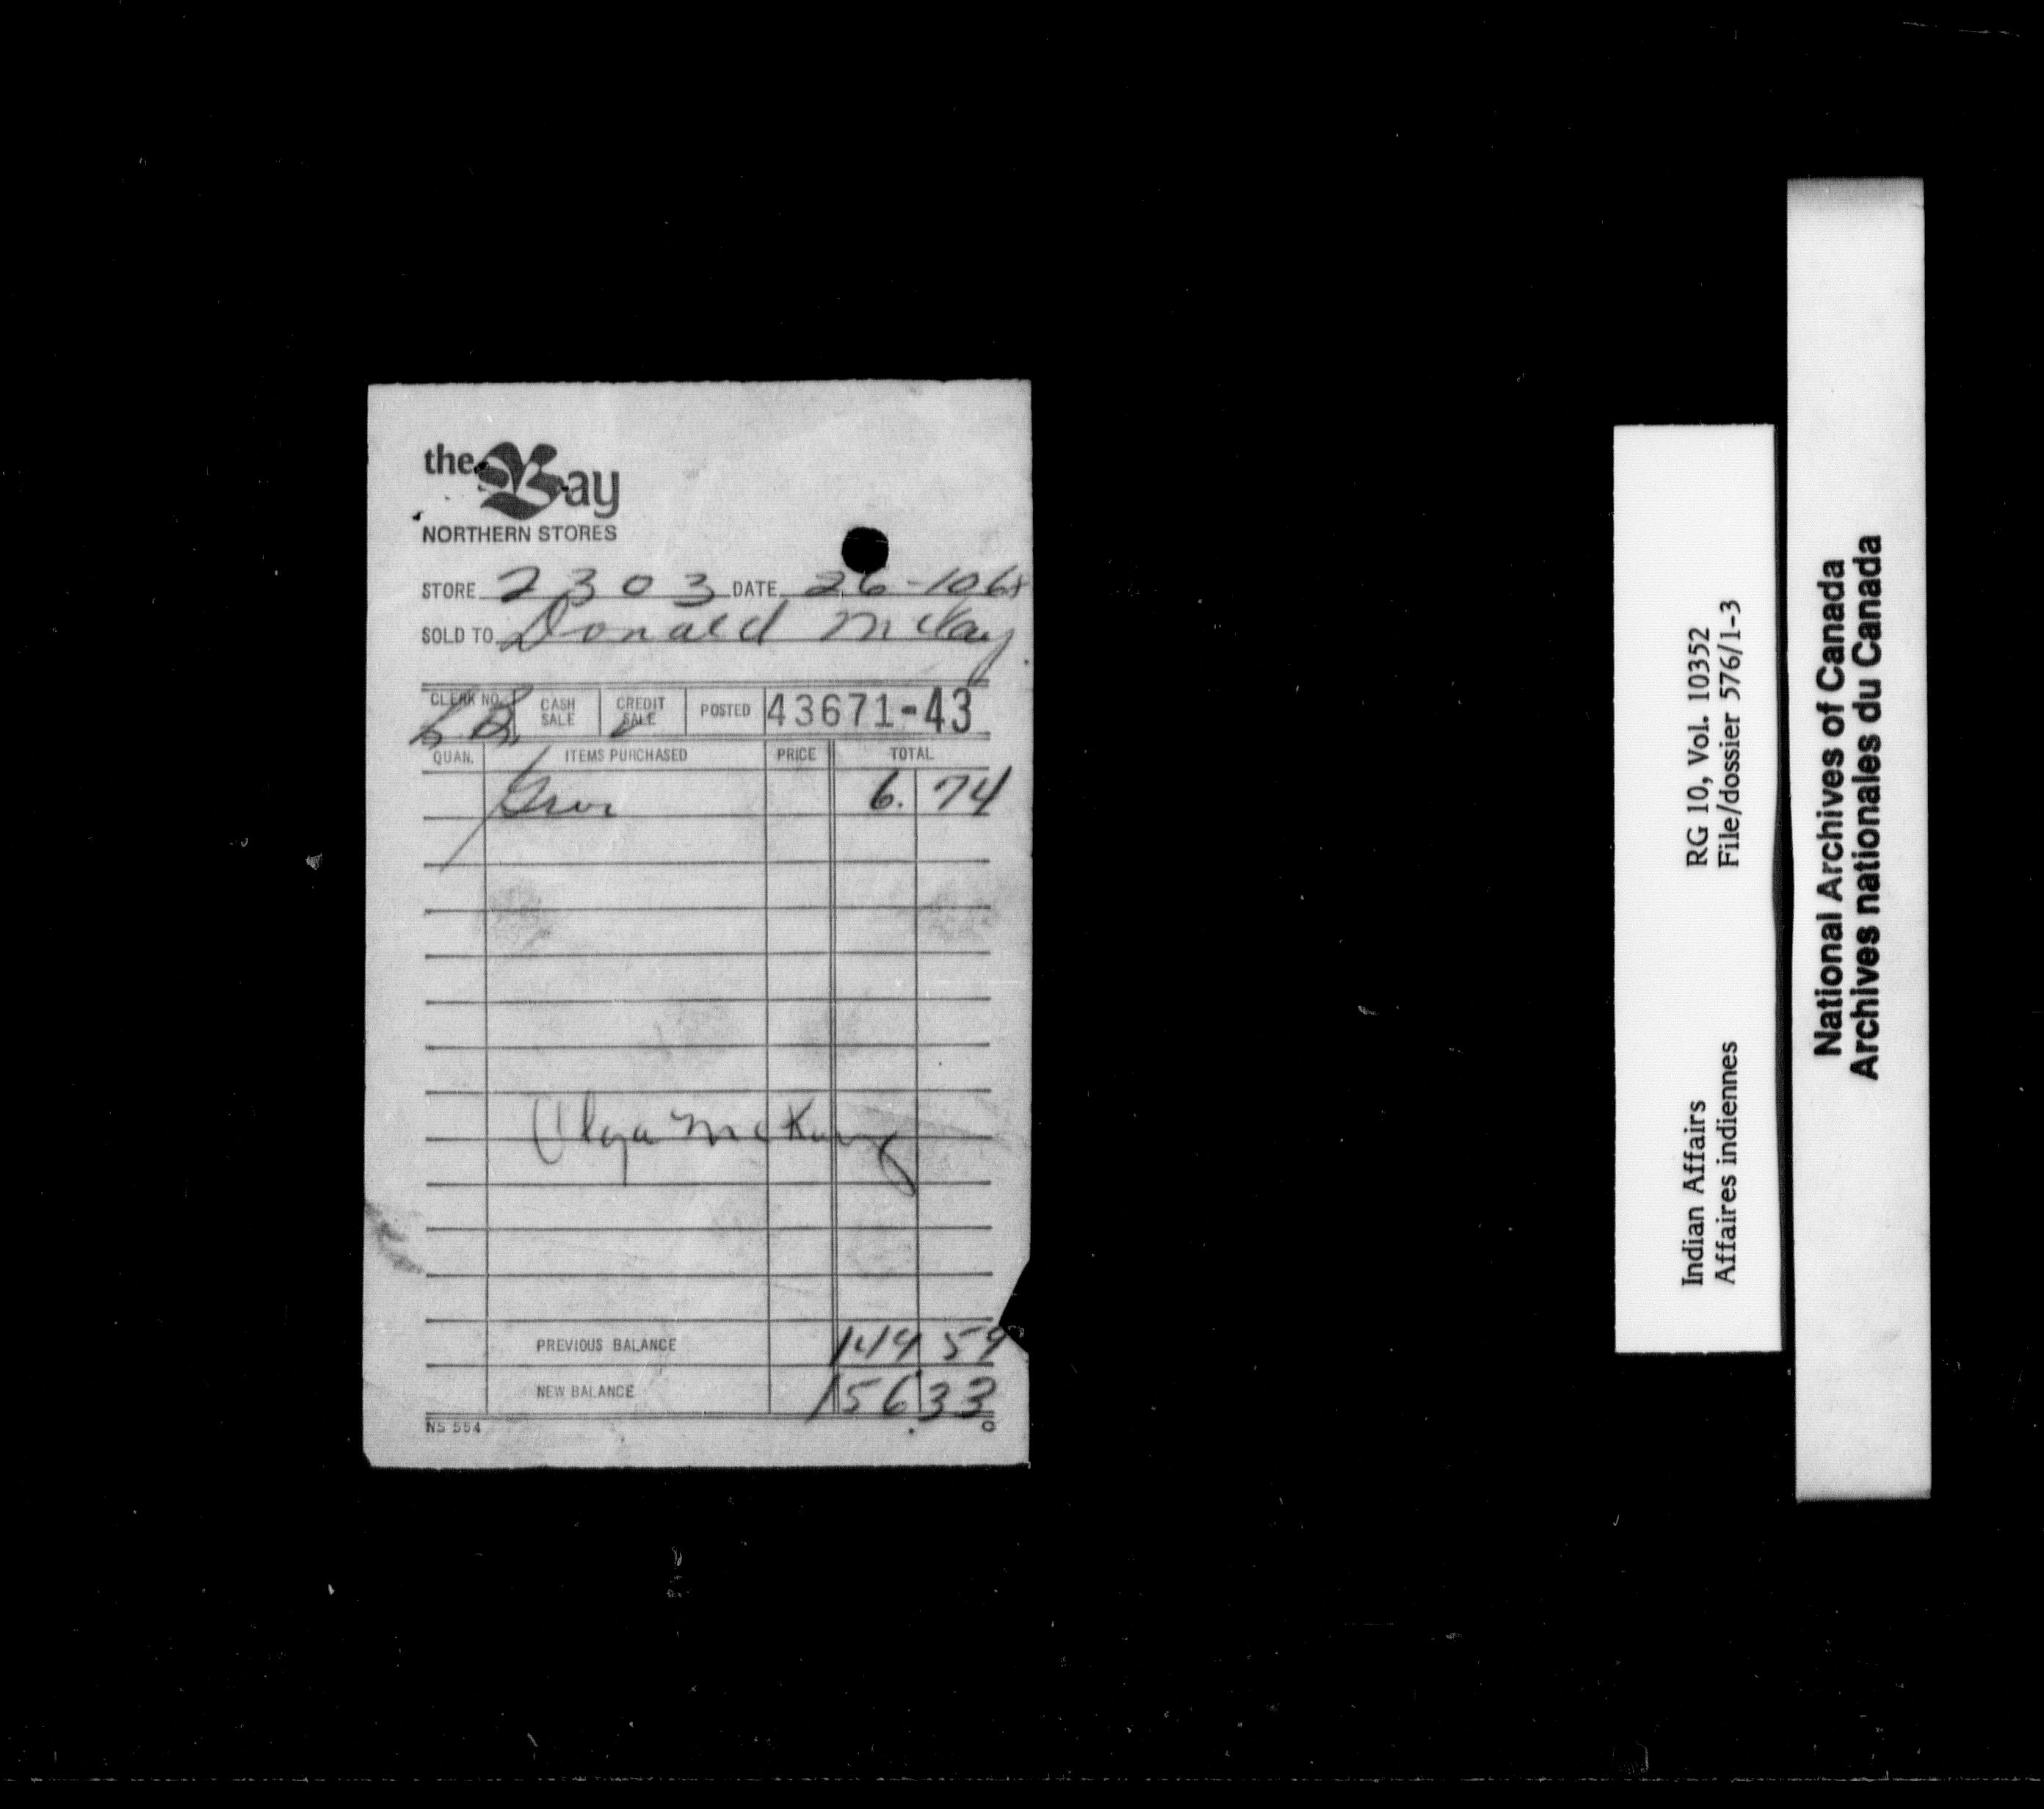 the Bay
NORTHERN STORES
STORE 2303 DATE 26-10 68
SOLD TO Donald McKay
CLERK NO. CASH SALE CREDIT SALE POSTED 43671-43
QUAN. ITEMS PURCHASED PRICE TOTAL
6. 74
Olga McKay
PREVIOUS BALANCE 149 59
NEW BALANCE 156 33
NS 554
Indian Affairs RG 10, Vol. 10352
Affaires indiennes File/dossier 576/1-3
National Archives of Canada
Archives nationales du Canada